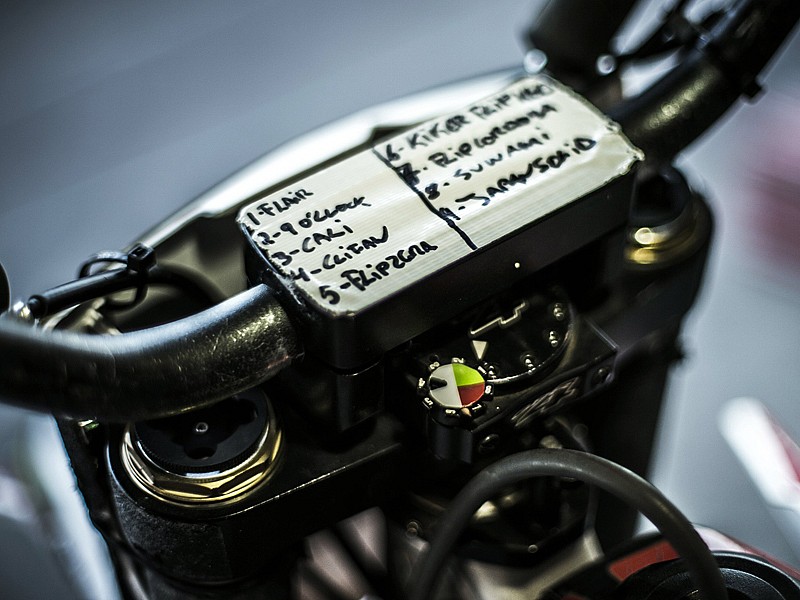 1-FLAIR
2-9 O'CLOCK
3-CALI
4-CLIFAN
5-FLIPZERA
6-KIKER FLIP
7-FLIPCORDOBA
8-SUWAMI
9-